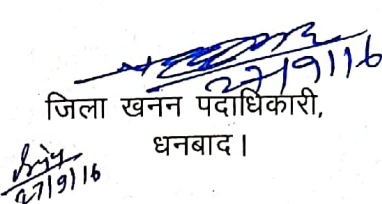 27/9/116
जिला खनन पदाधिकारी,
धनबाद।
27/9/16